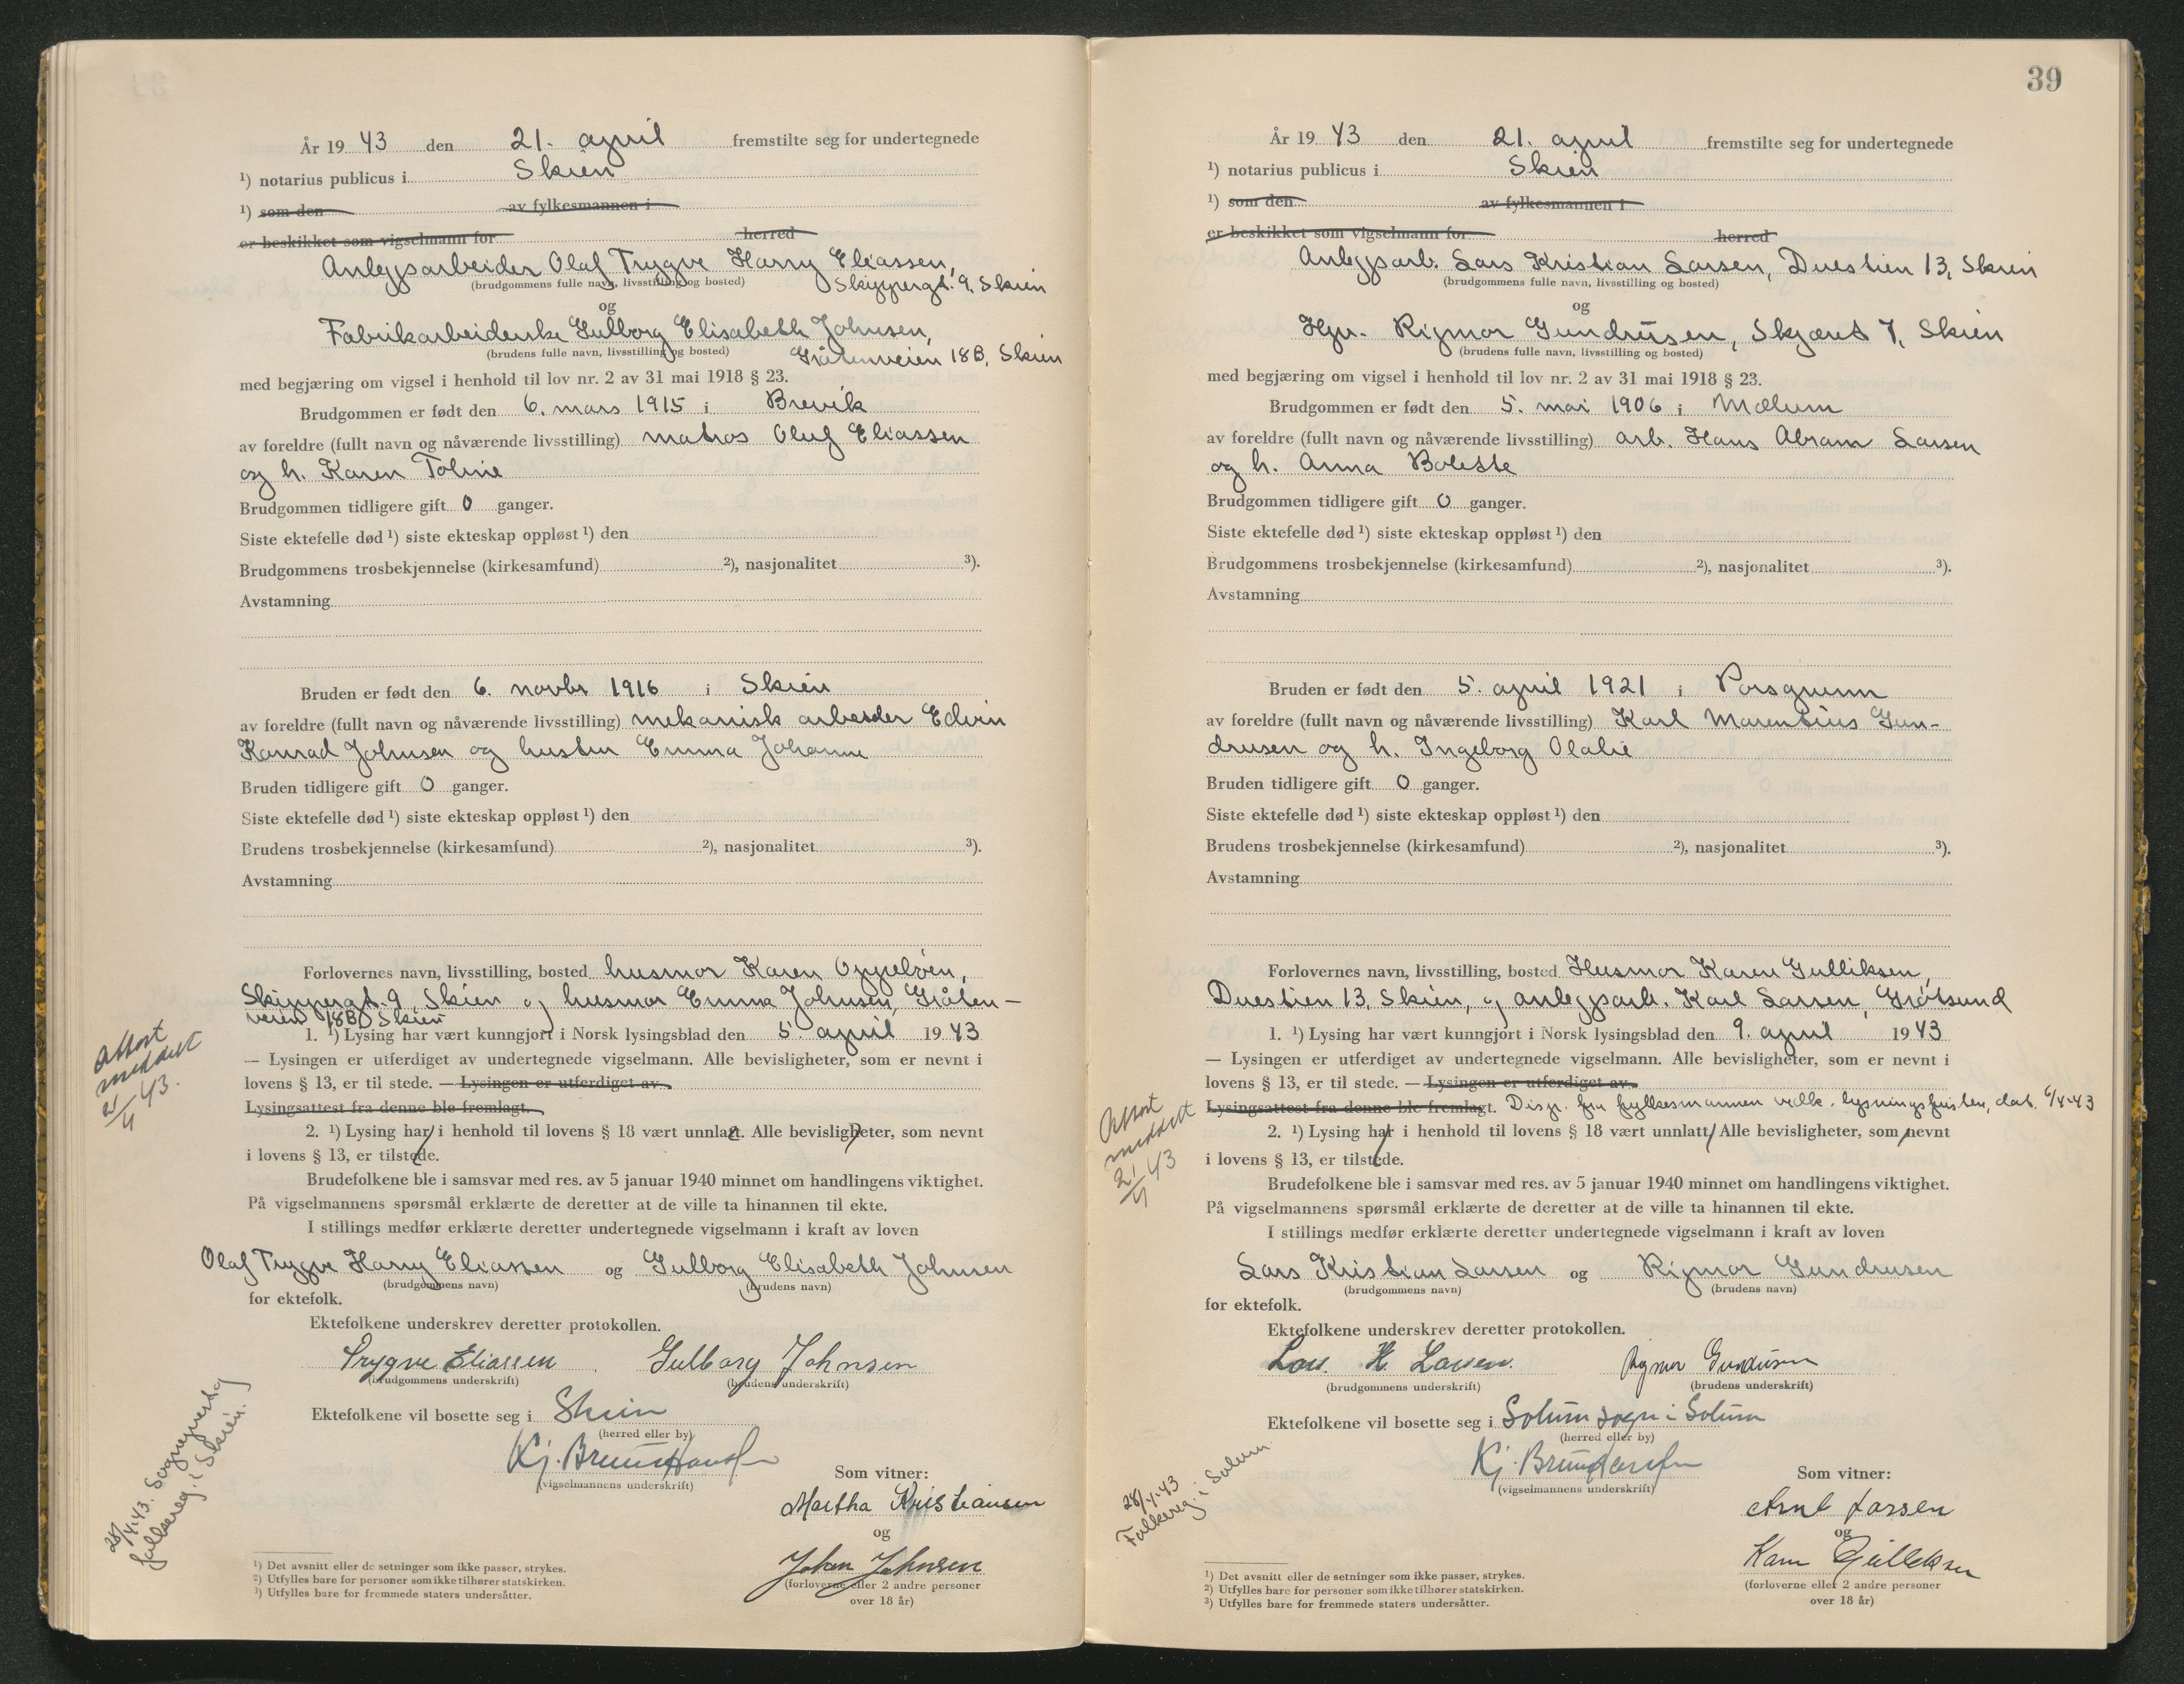 År 19 43 den 21. april fremstilte seg for undertegnede
¹) notarius publicus i Skien
¹) som den av fylkesmannen i
er beskikket som vigselmann for herred
Anleggsarbeider Olaf Trygve Harry Eliassen,
(brudgommens fulle navn, livsstilling og bosted) Skippergt. 9, Skien
og
Fabrikarbeiderske Gulborg Elisabeth Johnsen,
(brudens fulle navn, livsstilling og bosted) Gråtenveien 18B, Skien
med begjæring om vigsel i henhold til lov nr. 2 av 31 mai 1918 § 23.
Brudgommen er født den 6. mars 1915 i Brevik
av foreldre (fullt navn og nåværende livsstilling) matros Oluf Eliassen
og h. Karen Toline
Brudgommen tidligere gift 0 ganger.
Siste ektefelle død ¹) siste ekteskap oppløst ¹) den
Brudgommens trosbekjennelse (kirkesamfund) ²), nasjonalitet ³).
Avstamning
Bruden er født den 6. novbr 1916 i Skien
av foreldre (fullt navn og nåværende livsstilling) mekanisk arbeider Edvin
Konrad Johnsen og hustru Emma Johanne
Bruden tidligere gift 0 ganger.
Siste ektefelle død ¹) siste ekteskap oppløst ¹) den
Brudens trosbekjennelse (kirkesamfund) ²), nasjonalitet ³).
Avstamning
Forlovernes navn, livsstilling, bosted husmor Karen Oppeløen,
Skippergt. 9, Skien og husmor Emma Johnsen, Gråten-
veien 18B, Skien
1. ¹) Lysing har vært kunngjort i Norsk lysingsblad den 5. april 19 43
— Lysingen er utferdiget av undertegnede vigselmann. Alle bevisligheter, som er nevnt i
lovens § 13, er til stede. — Lysingen er utferdiget av
Lysingsattest fra denne ble fremlagt.
2. ¹) Lysing har i henhold til lovens § 18 vært unnlatt. Alle bevisligheter, som nevnt
i lovens § 13, er tilstede.
Brudefolkene ble i samsvar med res. av 5 januar 1940 minnet om handlingens viktighet.
På vigselmannens spørsmål erklærte de deretter at de ville ta hinannen til ekte.
I stillings medfør erklærte deretter undertegnede vigselmann i kraft av loven
Olaf Trygve Harry Eliassen og Gulborg Elisabeth Johnsen
(brudgommens navn) (brudens navn)
for ektefolk.
Ektefolkene underskrev deretter protokollen.
Trygve Eliassen Gulborg Johnsen
(brudgommens underskrift) (brudens underskrift)
Ektefolkene vil bosette seg i Skien
(herred eller by)
Kj. Bruun Hansen
(vigselmannens underskrift)
Som vitner:
Martha Kristiansen
og
Johan Johnsen
(forloverne eller 2 andre personer
over 18 år)
Attest
meddelt
21/4 43.
28/4.43. Sogneprest og
folkereg. i Skien.
¹) Det avsnitt eller de setninger som ikke passer, strykes.
²) Utfylles bare for personer som ikke tilhører statskirken.
³) Utfylles bare for fremmede staters undersåtter.
39
År 19 43 den 21. april fremstilte seg for undertegnede
¹) notarius publicus i Skien
¹) som den av fylkesmannen i
er beskikket som vigselmann for herred
Anleggsarb. Lars Kristian Larsen, Duestien 13, Skien
(brudgommens fulle navn, livsstilling og bosted)
og
Hgr. Rigmor Gundrusen, Skjæret 7, Skien
(brudens fulle navn, livsstilling og bosted)
med begjæring om vigsel i henhold til lov nr. 2 av 31 mai 1918 § 23.
Brudgommen er født den 5. mai 1906 i Mælum
av foreldre (fullt navn og nåværende livsstilling) arb. Hans Abram Larsen
og h. Anna Bolette
Brudgommen tidligere gift 0 ganger.
Siste ektefelle død ¹) siste ekteskap oppløst ¹) den
Brudgommens trosbekjennelse (kirkesamfund) ²), nasjonalitet ³).
Avstamning
Bruden er født den 5. april 1921 i Porsgrunn
av foreldre (fullt navn og nåværende livsstilling) Karl Marentius Gun-
drusen og h. Ingeborg Olalie
Bruden tidligere gift 0 ganger.
Siste ektefelle død ¹) siste ekteskap oppløst ¹) den
Brudens trosbekjennelse (kirkesamfund) ²), nasjonalitet ³).
Avstamning
Forlovernes navn, livsstilling, bosted Husmor Karen Gulliksen,
Duestien 13, Skien, og anleggsarb. Karl Larsen, Grøtsund
1. ¹) Lysing har vært kunngjort i Norsk lysingsblad den 9. april 19 43
— Lysingen er utferdiget av undertegnede vigselmann. Alle bevisligheter, som er nevnt i
lovens § 13, er til stede. — Lysingen er utferdiget av
Lysingsattest fra denne ble fremlagt. Disp. fra fylkesmannen vedk. lysningsfristen, dat. 6/4-43
2. ¹) Lysing har i henhold til lovens § 18 vært unnlatt. Alle bevisligheter, som nevnt
i lovens § 13, er tilstede.
Brudefolkene ble i samsvar med res. av 5 januar 1940 minnet om handlingens viktighet.
På vigselmannens spørsmål erklærte de deretter at de ville ta hinannen til ekte.
I stillings medfør erklærte deretter undertegnede vigselmann i kraft av loven
Lars Kristian Larsen og Rigmor Gundrusen
(brudgommens navn) (brudens navn)
for ektefolk.
Ektefolkene underskrev deretter protokollen.
Lars. K. Larsen. Rigmor Gundrusen
(brudgommens underskrift) (brudens underskrift)
Ektefolkene vil bosette seg i Solum sogn i Solum
(herred eller by)
Kj. Bruun Hansen
(vigselmannens underskrift)
Som vitner:
Arnt Larsen
og
Karen Gulliksen
(forloverne eller 2 andre personer
over 18 år)
Attest
meddelt
21/4 43
28/4.43
Folkereg. i Solum
¹) Det avsnitt eller de setninger som ikke passer, strykes.
²) Utfylles bare for personer som ikke tilhører statskirken.
³) Utfylles bare for fremmede staters undersåtter.